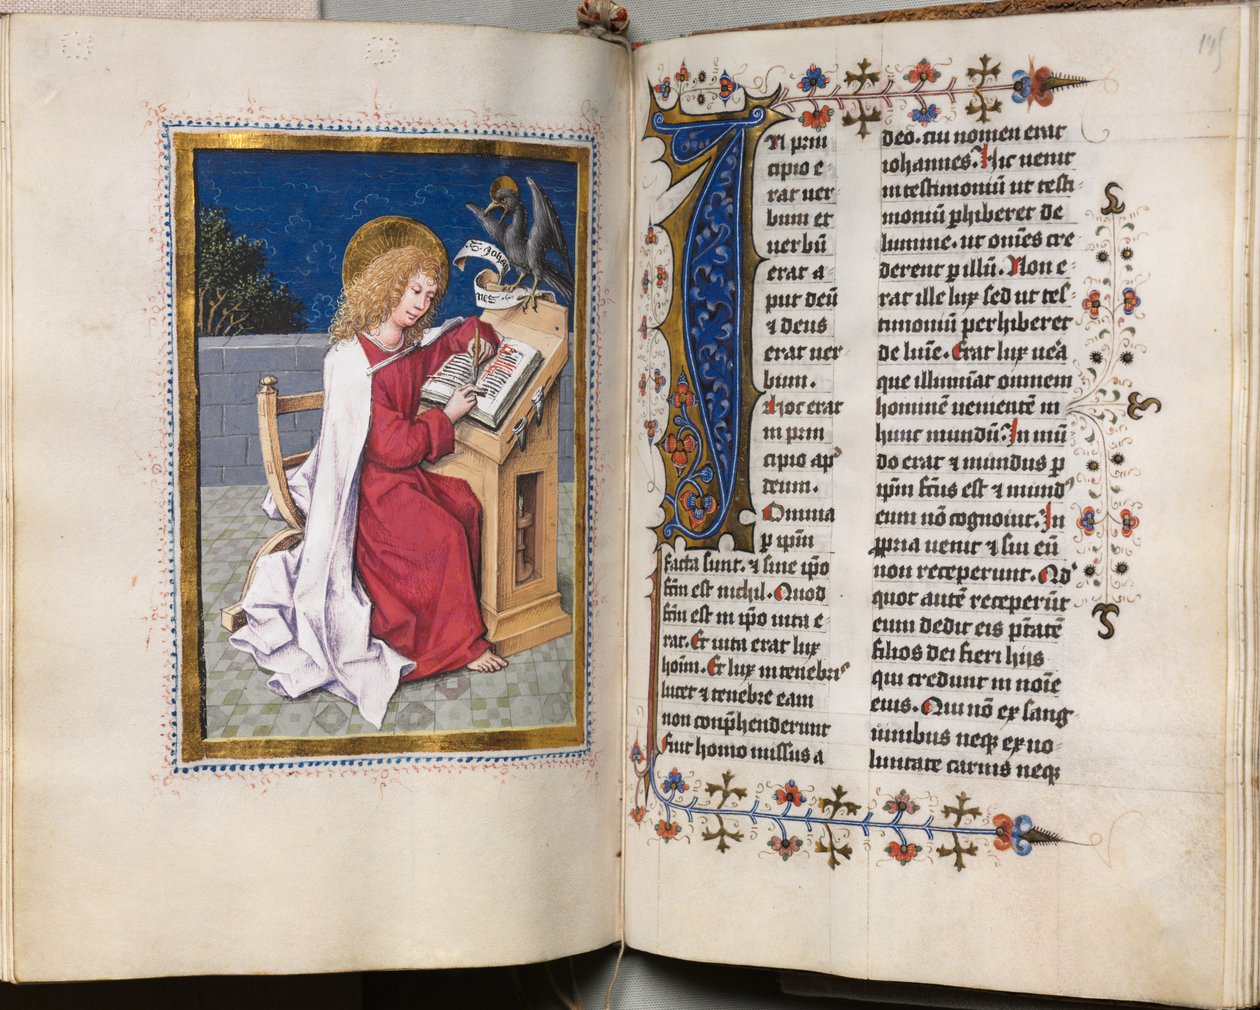 S. Johan
nes
145
In prin
cipio e-
rat uer
bum et
uerbū
erat a-
put deū
⁊ deus
erat uer
bum.
Hoc erat
in prin
cipio apʾ
deum.
Omnia
ꝑ ipm̄
facta sunt. ⁊ sine ip̄o
fcm̄ est nichil. Quod
fcm̄ est in ip̄o uita e-
rat. Et uita erat lux
hoīm. Et lux in tenebrisˢ
lucet ⁊ tenebre eam
non conp̄henderunt
Fuit homo missus a
deo. cui nomen erat
iohannes. Hic uenit
in testimoniū ut testi
moniū phiberet de
lumine. ut om̄es cre
derent ꝑ illū. Non e-
rat ille lux sed ut tes-
timoniū perhiberet
de lum̄e. Erat lux uēa
que illumīat omnem
hominē uenientē in
hunc mundū. In mū
do erat ⁊ mundus ꝑ
ipm̄ fc̄us est ⁊ mundʾ
eum nō cognouit. In
ꝓpria uenit ⁊ sui eū
non receperunt. Qdʾ
quot autē receperūt
eum dedit eis p̄tatē
filios dei fieri hijs
qui credunt in noīe
eius. Qui nō ex sang-
uinibus neqꝫ ex uo-
luntate carnis neqꝫ